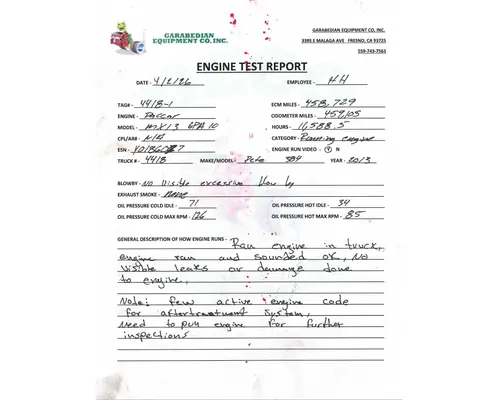 GARABEDIAN
EQUIPMENT CO, INC.
GARABEDIAN EQUIPMENT CO, INC.
3395 E MALAGA AVE FRESNO, CA 93725
559-743-7563
ENGINE TEST REPORT
DATE - 4/2/26 EMPLOYEE - HH
TAG# - 441B-1 ECM MILES - 458,729
ENGINE - Paccar ODOMETER MILES - 459105
MODEL - MX13 HOURS - 16,588.5
CPL/AR# - N/A CATEGORY - Running engine
ESN - ENGINE RUN VIDEO - Y N
TRUCK # - 441B MAKE/MODEL - Pete 384 YEAR - 2013
BLOWBY - No Visible excessive blow by
EXHAUST SMOKE - None
OIL PRESSURE COLD IDLE - 71 OIL PRESSURE HOT IDLE - 34
OIL PRESSURE COLD MAX RPM - 126 OIL PRESSURE HOT MAX RPM - 85
GENERAL DESCRIPTION OF HOW ENGINE RUNS - Ran engine in truck,
engine ran and sounded OK, NO
visible leaks or damage done
to engine,
Note: few active engine code
for aftertreatment system,
Need to pull engine for further
inspections